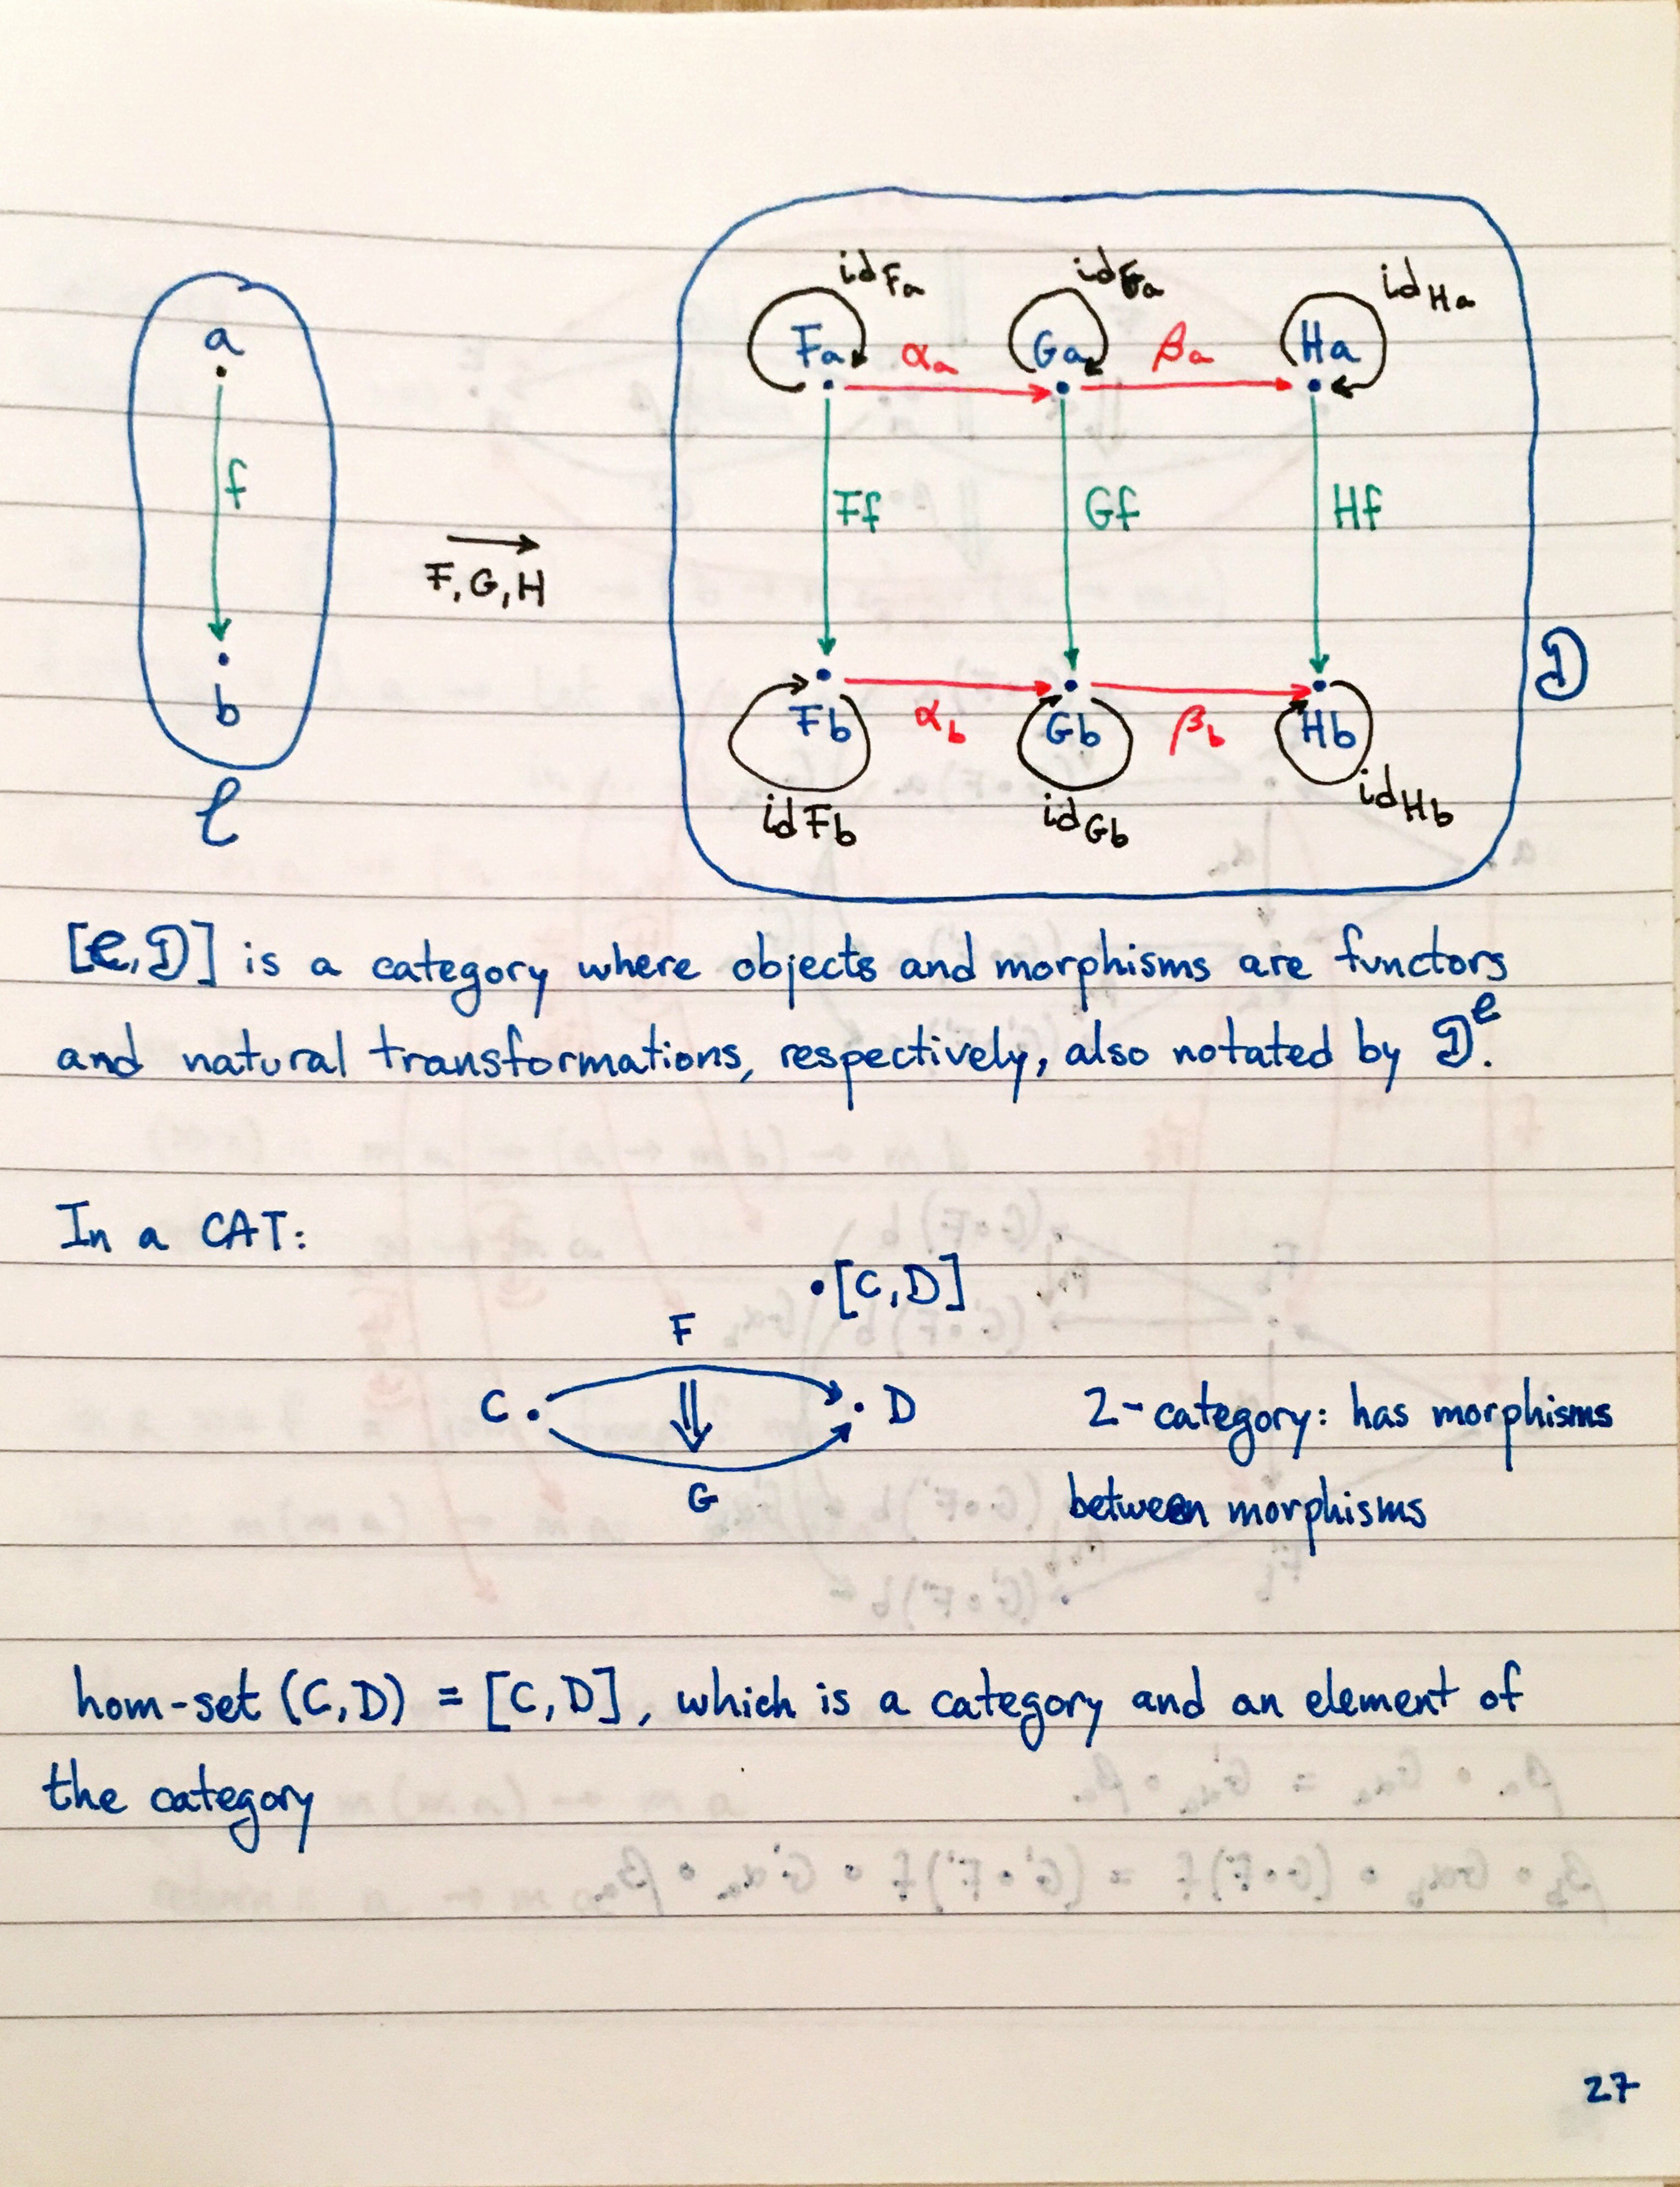 id_Fa id_Ga id_Ha
a Fa α_a Ga β_a Ha
f Ff Gf Hf
F, G, H
b Fb α_b Gb β_b Hb 𝒟
𝒞 id_Fb id_Gb id_Hb
[𝒞,𝒟] is a category where objects and morphisms are functors
and natural transformations, respectively, also notated by 𝒟^𝒞.
In a CAT:
•[C,D]
F
C • ⇓ • D 2-category: has morphisms
G between morphisms
hom-set (C,D) = [C,D], which is a category and an element of
the category
27